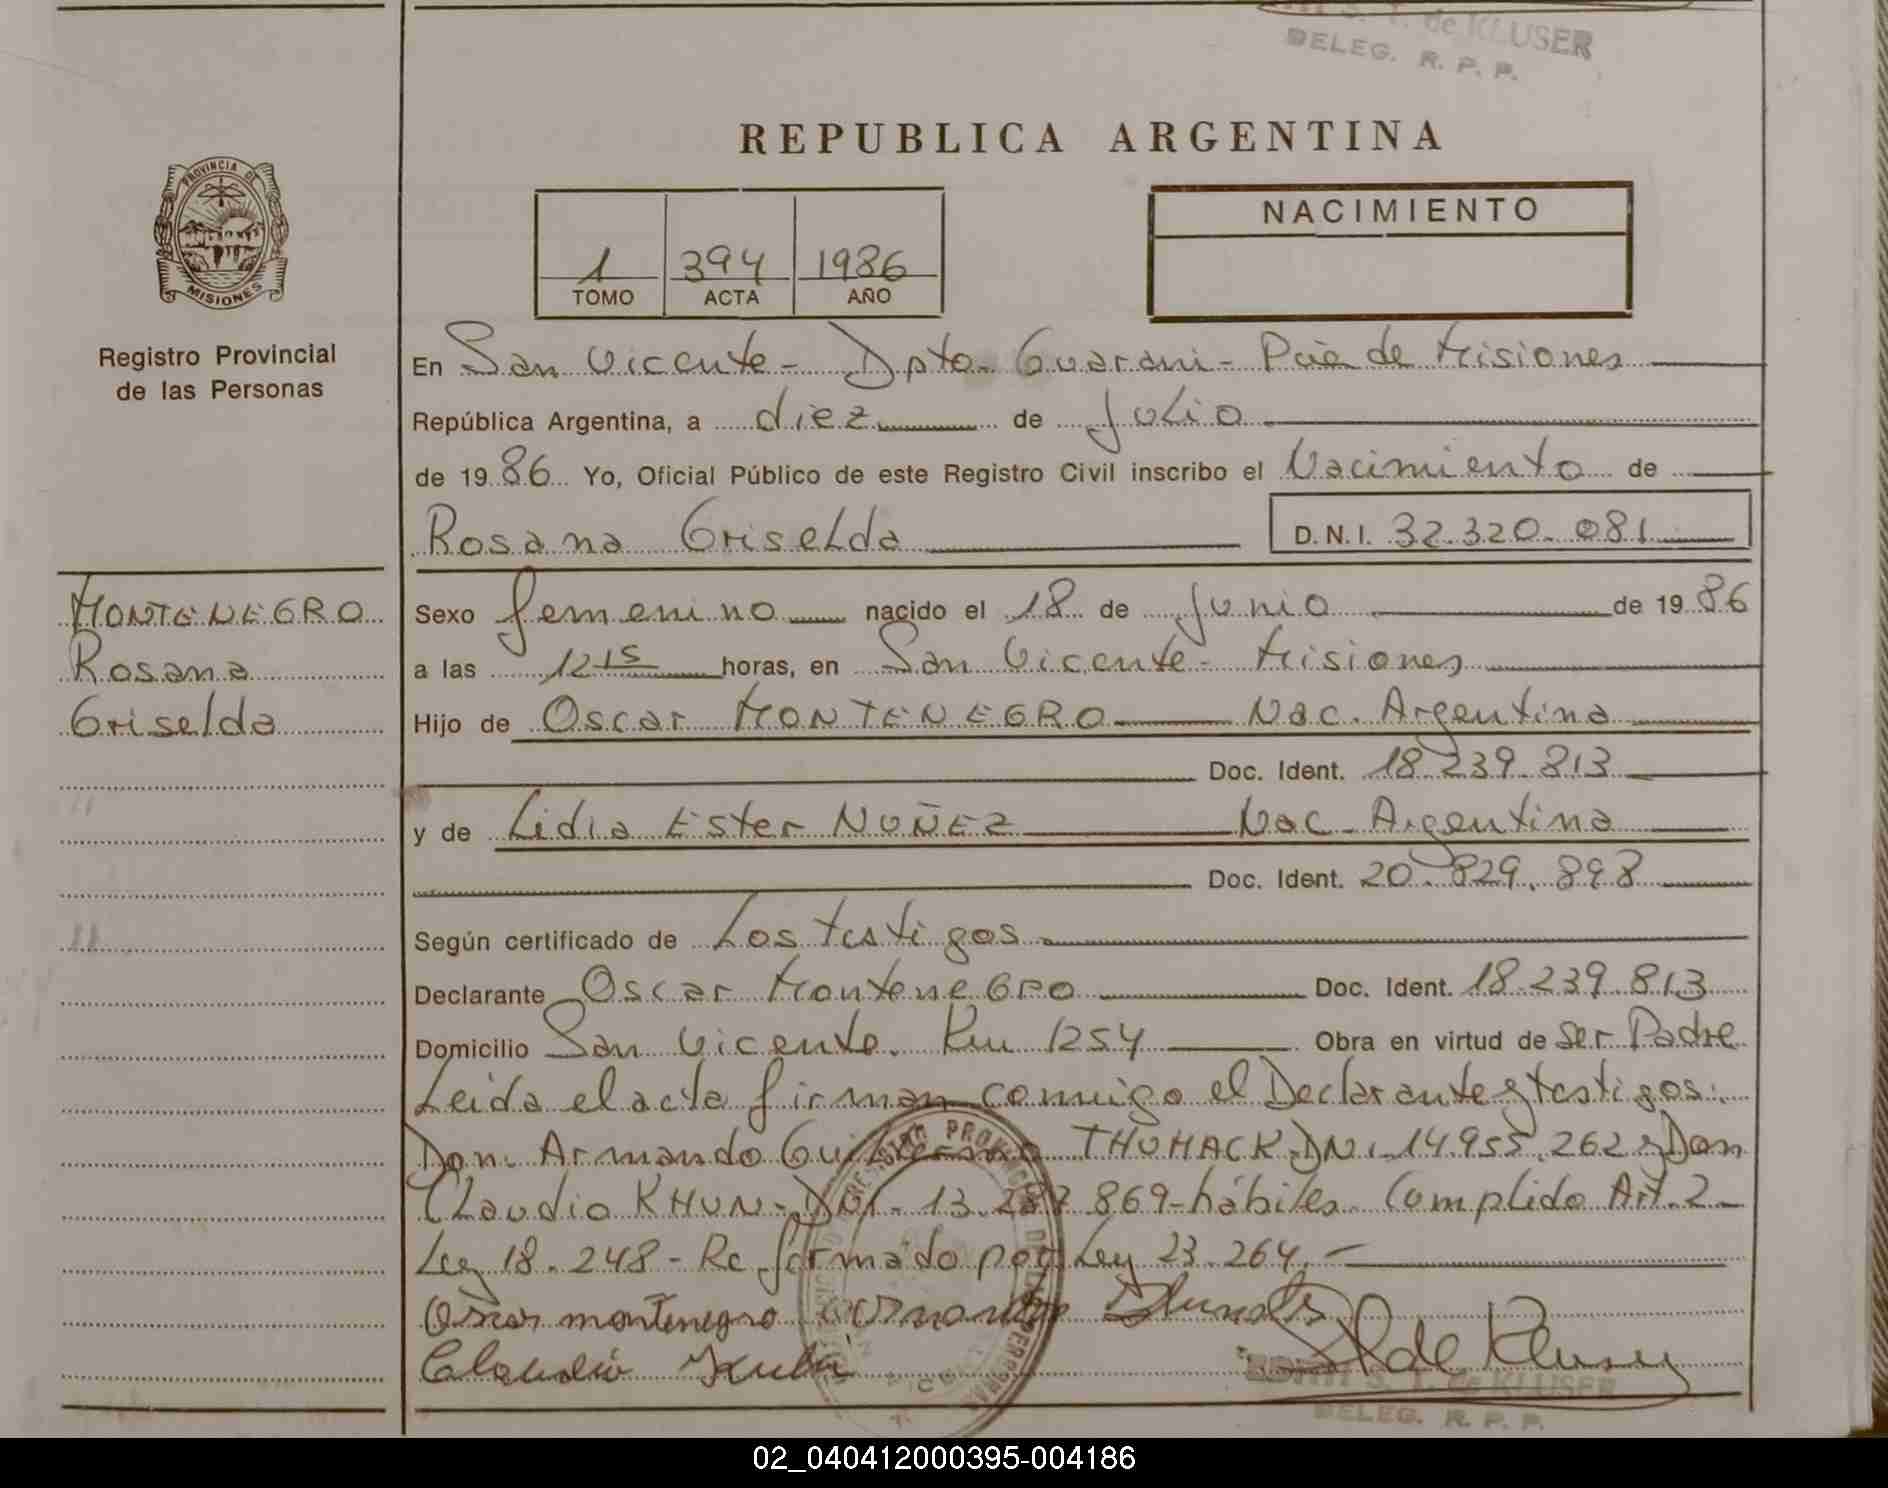 S. T. de KLUSER
DELEG. R. P. P.
REPUBLICA ARGENTINA
PROVINCIA DE
MISIONES
Registro Provincial
de las Personas
1 394 1986
TOMO ACTA AÑO
NACIMIENTO
En San Vicente - Dpto. Guarani - Pcia de Misiones
República Argentina, a diez de Julio
de 1986 Yo, Oficial Público de este Registro Civil inscribo el Nacimiento de
Rosana Griselda D.N.I. 32.320.081
MONTENEGRO
Rosana
Griselda
Sexo femenino nacido el 18 de Junio de 1986
a las 12 15 horas, en San Vicente - Misiones
Hijo de Oscar MONTENEGRO Nac. Argentina
Doc. Ident. 18.239.813
y de Lidia Ester NUÑEZ Nac. Argentina
Doc. Ident. 20.829.898
Según certificado de Los testigos
Declarante Oscar MonteneGro Doc. Ident. 18.239.813
Domicilio San Vicente. Km 1254 Obra en virtud de Ser Padre
Leida el acta firman conmigo el Declarante y testigos:
Don Armando Guillermo THUMACK DNI 14.955.262 y Don
Claudio KHUN - DNI - 13. 869 - hábiles. Complido Art. 2 -
Ley 18.248 - Reformado por Ley 23.264. -
Oscar montenegro Armando
Claudio
S. T. de KLUSER
DELEG. R. P. P.
02_040412000395-004186